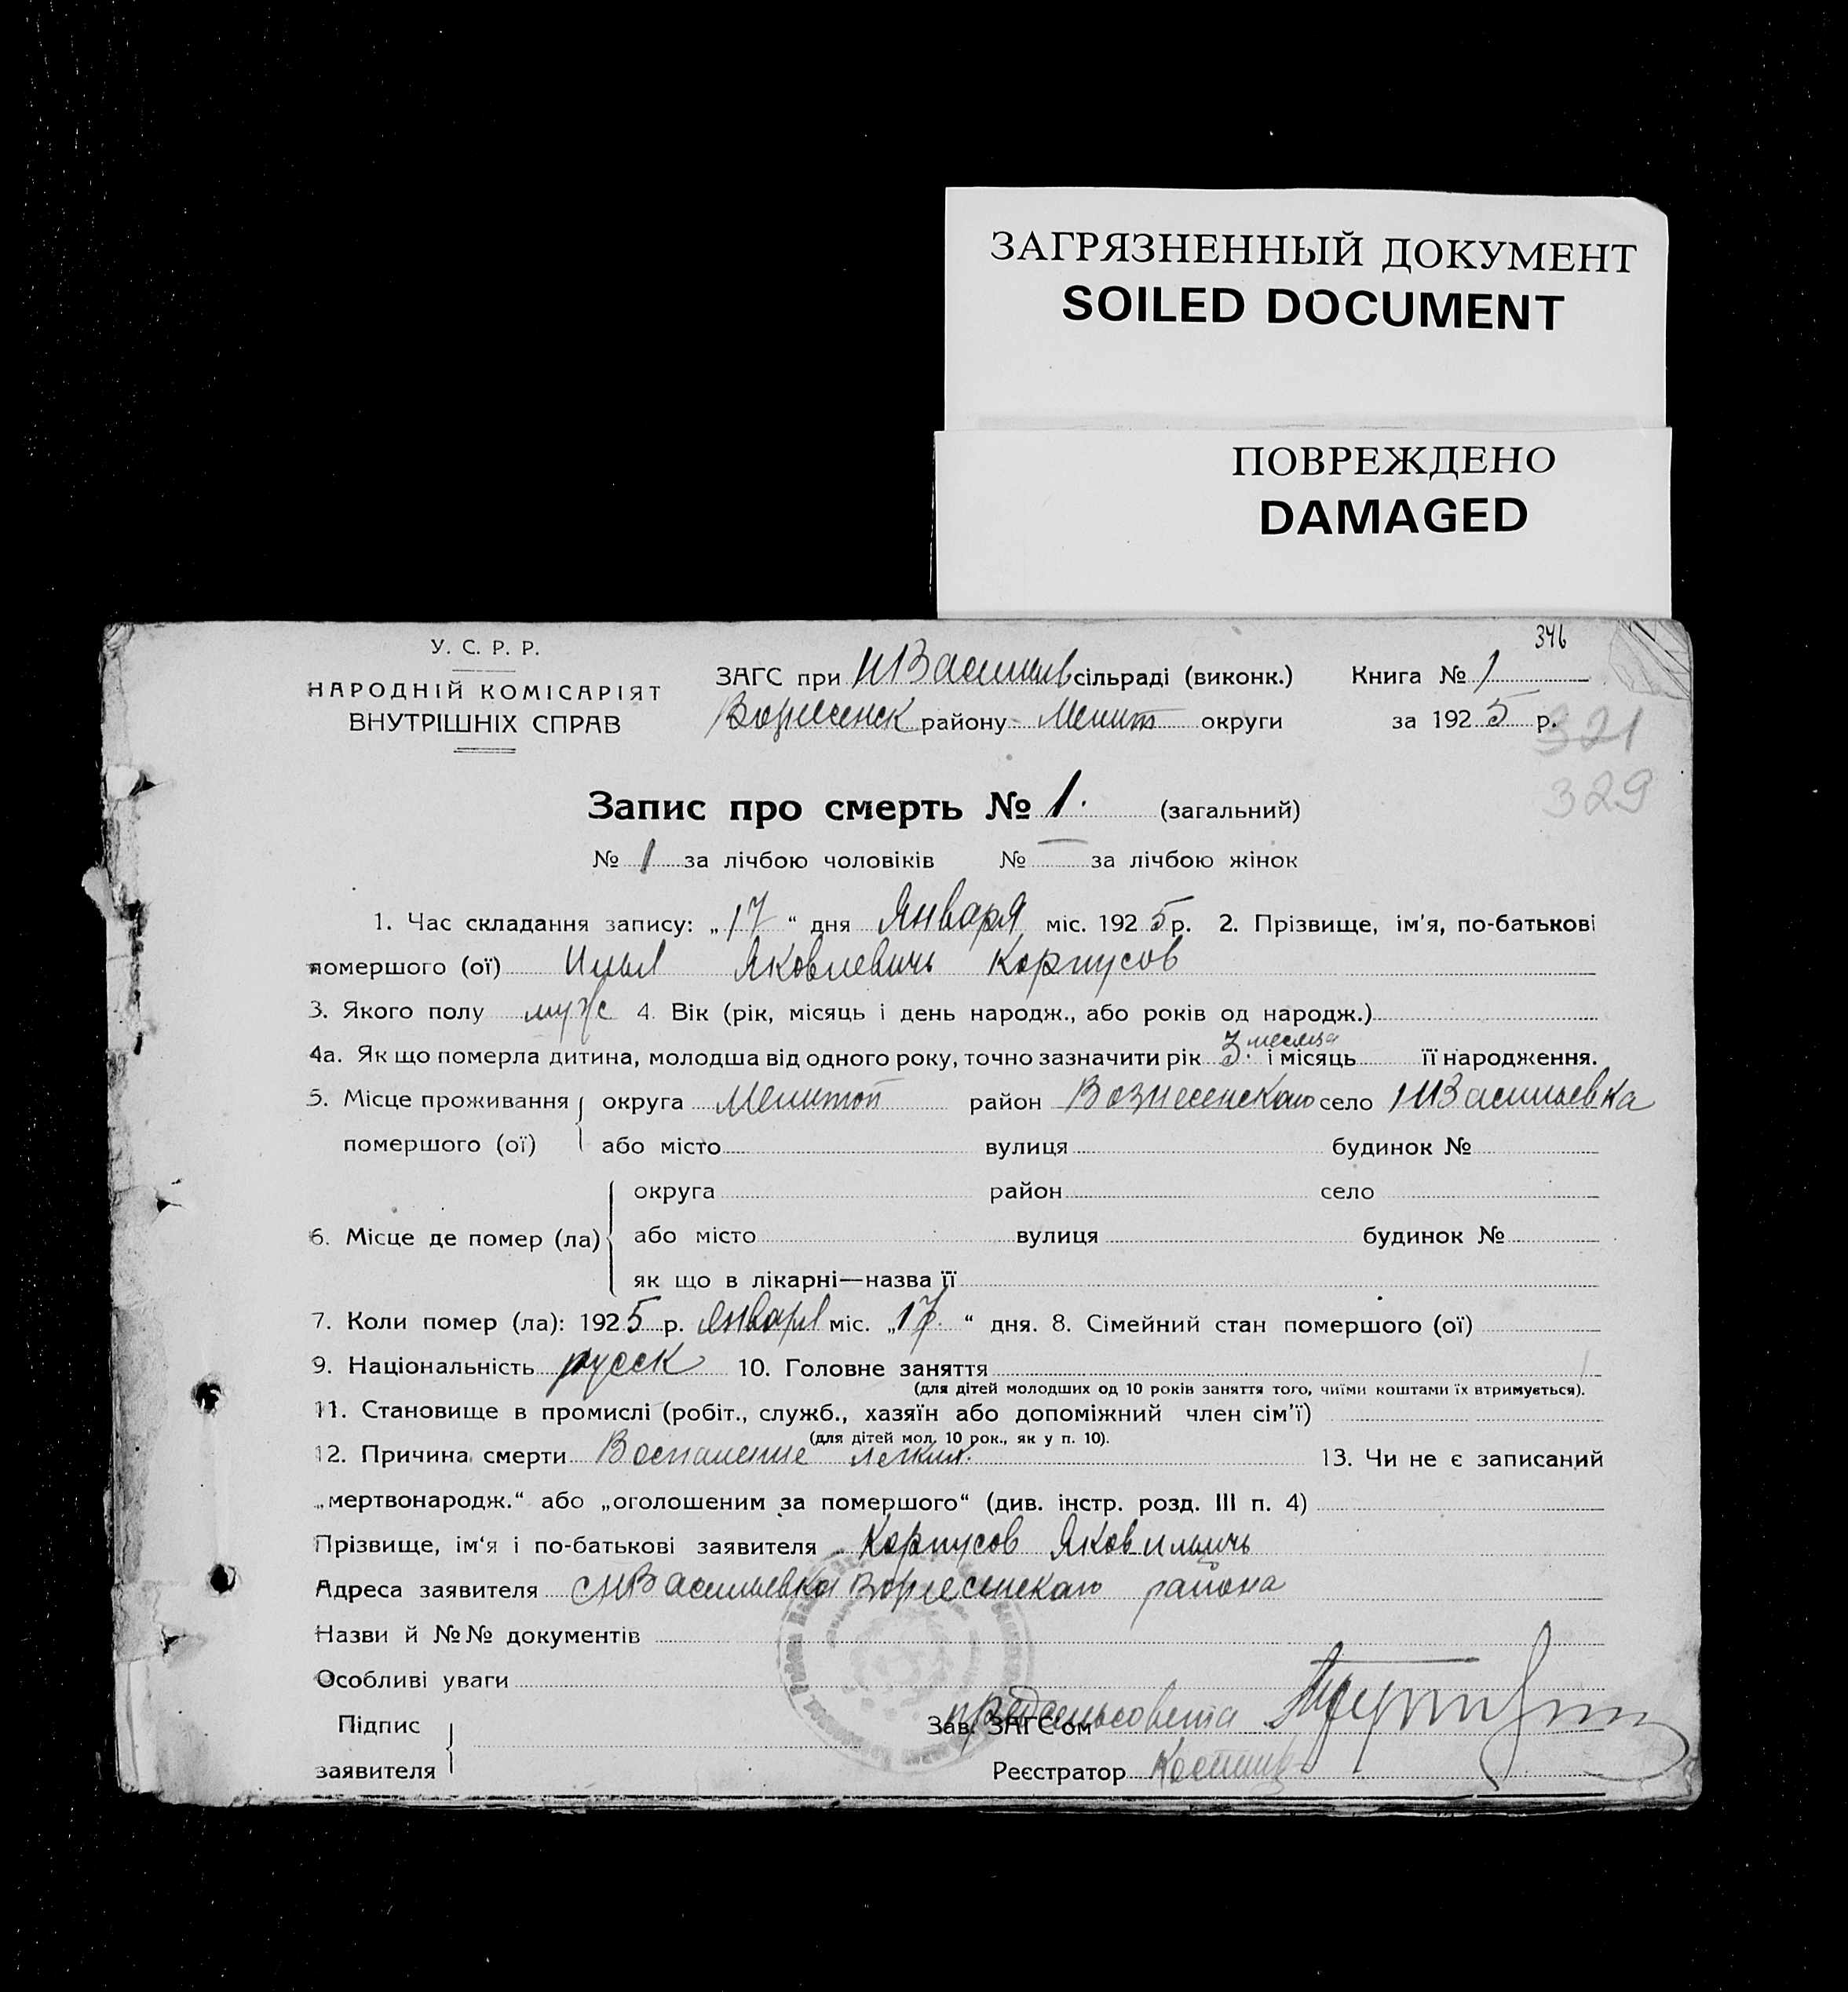 ЗАГРЯЗНЕННЫЙ ДОКУМЕНТ
SOILED DOCUMENT
ПОВРЕЖДЕНО
DAMAGED
346
У. С. Р. Р.
НАРОДНІЙ КОМІСАРІЯТ
ВНУТРІШНІХ СПРАВ
ЗАГС при НВасилів сільраді (виконк.) Книга № 1
Вознесенск району Мелит округи за 1925 р.
321
329
Запис про смерть № 1. (загальний)
№ 1 за лічбою чоловіків № — за лічбою жінок
1. Час складання запису: „17“ дня Января міс. 1925 р. 2. Прізвище, ім'я, по-батькові
помершого (ої) Илья Яковлевичь Корпусов
3. Якого полу муж 4. Вік (рік, місяць і день народж., або років од народж.)
4а. Як що померла дитина, молодша від одного року, точно зазначити рік 3 месяца і місяць її народження.
5. Місце проживання округа Мелитоп район Вознесенскаго село НВасильевка
помершого (ої) або місто вулиця будинок №
округа район село
6. Місце де помер (ла) або місто вулиця будинок №
як що в лікарні—назва її
7. Коли помер (ла): 1925 р. Января міс. „17“ дня. 8. Сімейний стан помершого (ої)
9. Національність русск 10. Головне заняття
(для дітей молодших од 10 років заняття того, чиїми коштами їх втримується).
11. Становище в промислі (робіт., служб., хазяїн або допоміжний член сім'ї)
(для дітей мол. 10 рок., як у п. 10).
12. Причина смерти Воспаление легких. 13. Чи не є записаний
„мертвонародж.“ або „оголошеним за помершого“ (див. інстр. розд. III п. 4)
Прізвище, ім'я і по-батькові заявителя Корпусов Яков Ильичь
Адреса заявителя с НВасильевка Вознесенскаго района
Назви й №№ документів
Особливі уваги
Підпис
Зав. ЗАГС'ом предсельсовета
заявителя
Реєстратор